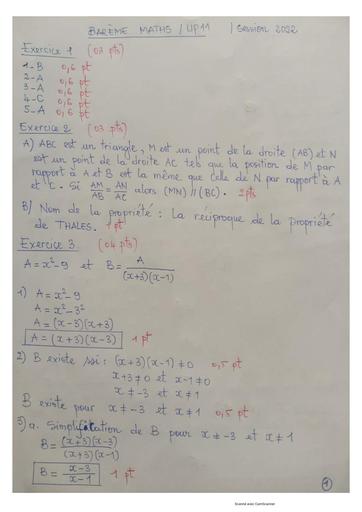 BARÈME MATHS / UP11 / Session 2022
Exercice 1 (03 pts)
1-B 0,6 pt
2-A 0,6 pt
3-A 0,6 pt
4-C 0,6 pt
5-A 0,6 pt
Exercice 2 (03 pts)
A) ABC est un triangle, M est un point de la droite (AB) et N
est un point de la droite AC tels que la position de M par
rapport à A et B est la même que celle de N par rapport à A
et C. Si AM/AB = AN/AC alors (MN) // (BC). 2pts
B/ Nom de la propriété : La réciproque de la propriété
de THALES. 1pt
Exercice 3 (04 pts)
A = x²-9 et B = A/((x+3)(x-1))
1) A = x²-9
A = x²-3²
A = (x-3)(x+3)
A = (x+3)(x-3) 1 pt
2) B existe ssi : (x+3)(x-1) ≠ 0 0,5 pt
x+3 ≠ 0 et x-1 ≠ 0
x ≠ -3 et x ≠ 1
B existe pour x ≠ -3 et x ≠ 1 0,5 pt
3) a. Simplification de B pour x ≠ -3 et x ≠ 1
B = ((x+3)(x-3))/((x+3)(x-1))
B = (x-3)/(x-1) 1 pt
1
Scanné avec CamScanner